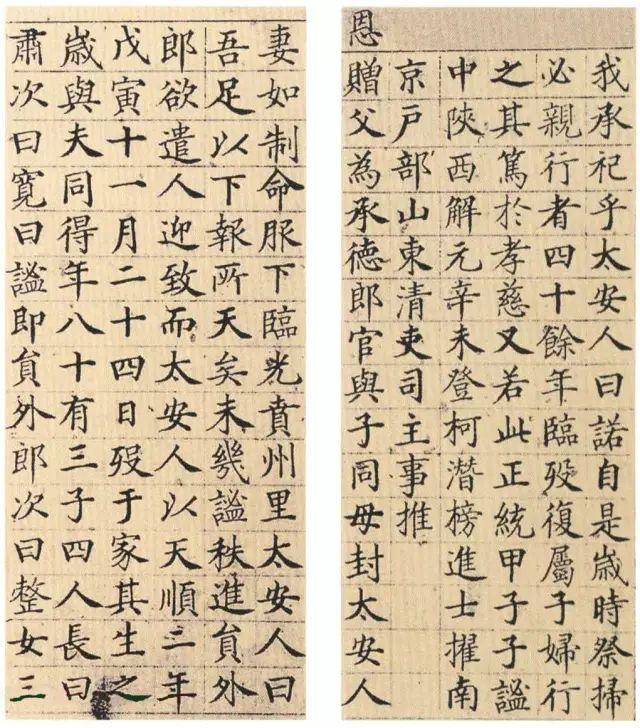 我承祀乎太安人曰諾自是歲時祭掃
必親行者四十餘年臨歿復屬子婦行
之其篤於孝慈又若此正統甲子子謐
中陝西解元辛未登柯潛榜進士擢南
京戶部山東清吏司主事推
恩贈父為承德郎官與子同母封太安人
妻如制命服下臨光賁州里太安人曰
吾足以下報所天矣未幾謐秩進貟外
郎欲遣人迎致而太安人以天順三年
戊寅十一月二十四日歿于家其生之
歲與夫同得年八十有三子四人長曰
肅次曰寬曰謐即貟外郎次曰整女三